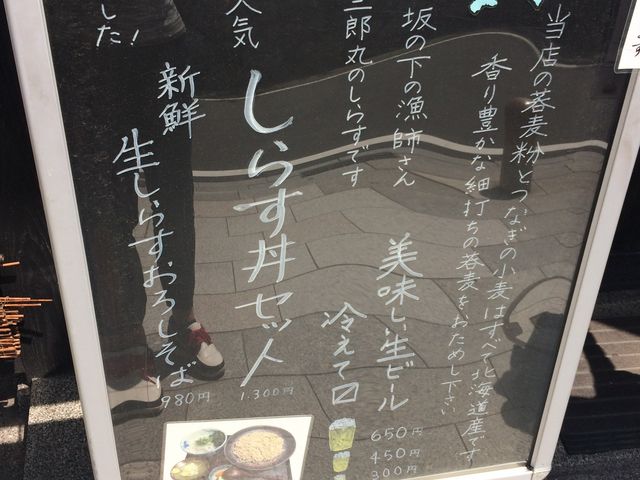 当店の蕎麦粉とつなぎの小麦はすべて北海道産です
香り豊かな細打ちの蕎麦をおためし下さい
坂の下の漁師さん
三郎丸のしらすです
美味しい生ビール
冷えて〼
650円
450円
300円
人気
しらす丼セット
1.300円
新鮮
生しらすおろしそば
980円
した!